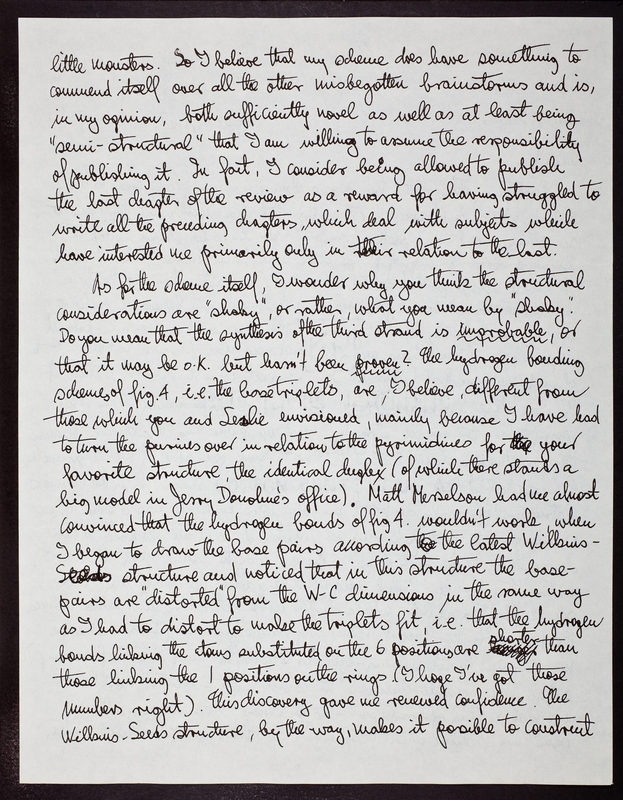 little monsters. So I believe that my scheme does have something to
commend itself over all the other misbegotten brainstorms and is,
in my opinion, both sufficiently novel as well as at least being
"semi-structural" that I am willing to assume the responsibility
of publishing it. In fact, I consider being allowed to publish
the last chapter of the review as a reward for having struggled to
write all the preceding chapters, which deal with subjects which
have interested me primarily only in their relation to the last.
As for the scheme itself, I wonder why you think the structural
considerations are "shaky", or rather, what you mean by "shaky".
Do you mean that the synthesis of the third strand is improbable, or
that it may be o.k. but hasn't been proven? The hydrogen bonding
schemes of fig. 4, i.e. the base triplets, are, I believe, different from
those which you and Leslie envisioned, mainly because I have had
to turn the purines over in relation to the pyrimidines for your
favorite structure, the identical duplex (of which there stands a
big model in Jerry Donohue's office). Matt Meselson had me almost
convinced that the hydrogen bonds of fig 4. wouldn't work, when
I began to draw the base pairs according to the latest Wilkins-
Seeds structure and noticed that in this structure the base-
pairs are "distorted" from the W-C dimensions in the same way
as I had to distort to make the triplets fit, i.e. that the hydrogen
bonds linking the atoms substituted on the 6 positions are shorter than
those linking the 1 positions on the rings. (I hope I've got those
numbers right). This discovery gave me renewed confidence. The
Wilkins-Seeds structure, by the way, makes it possible to construct